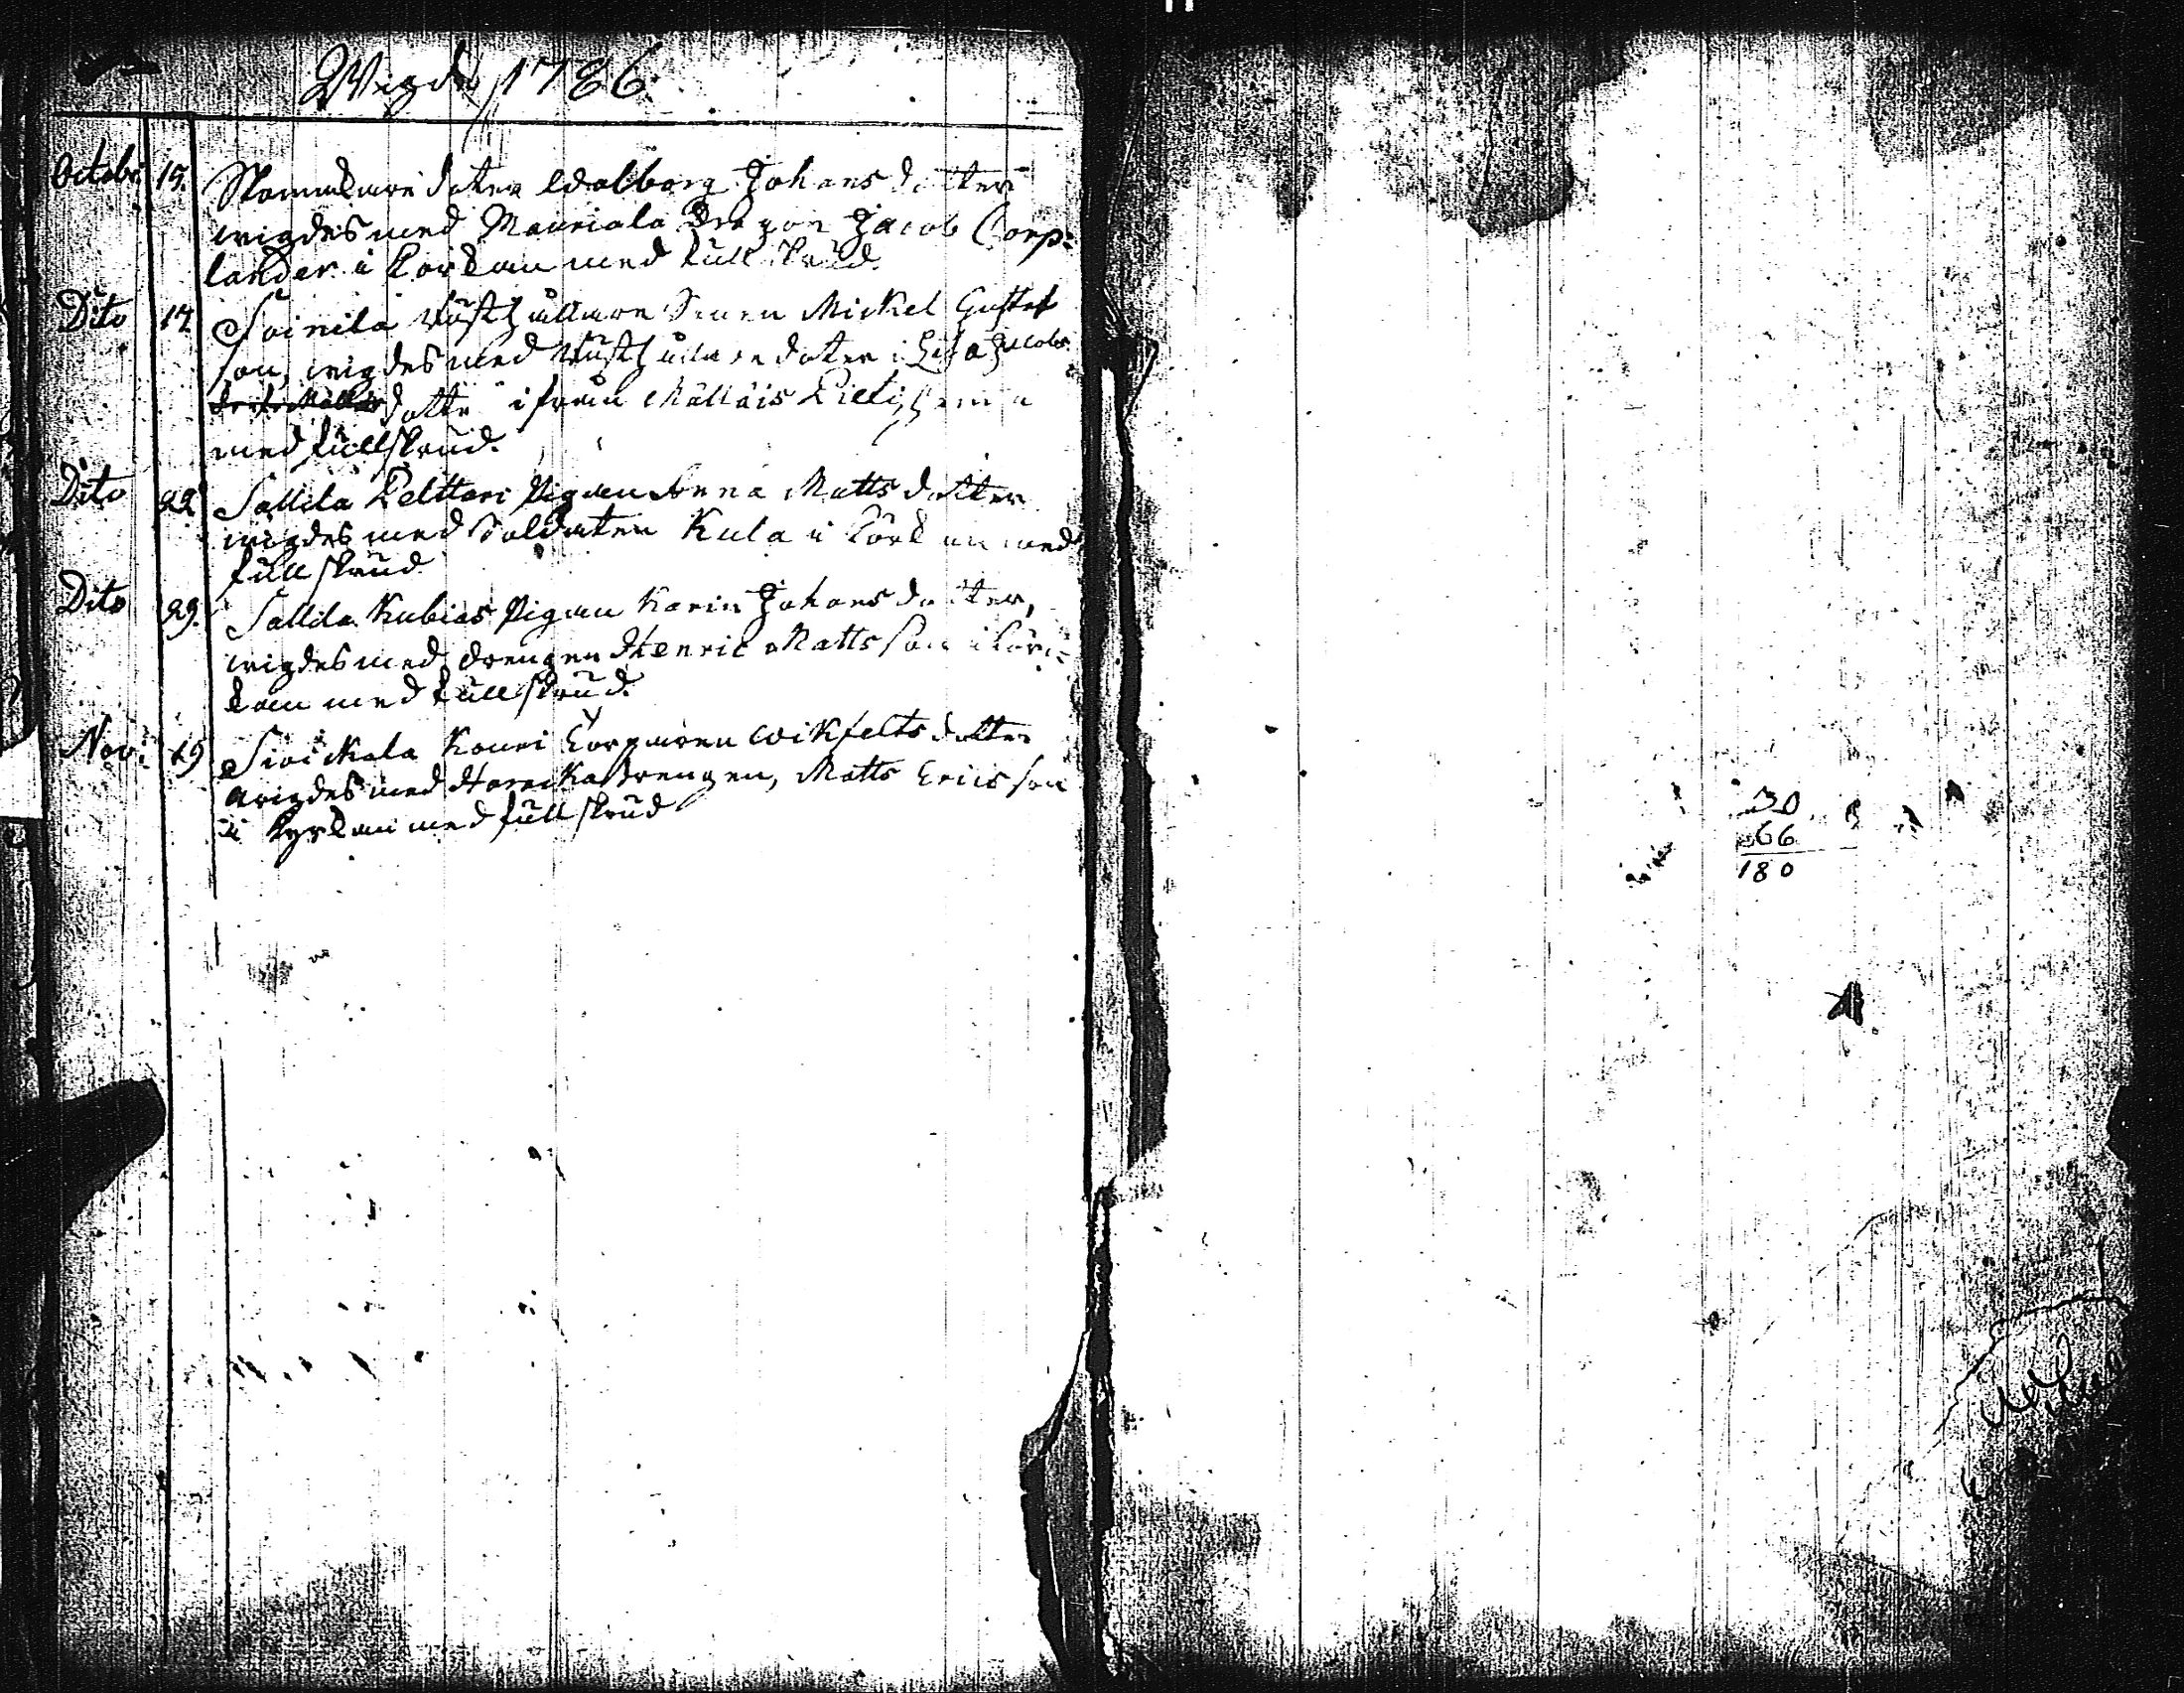 Wigde 1786.
Octobr: 15. doter Walborg Johans dotter
wigdes med Mauriala Dragon Jacob Corp=
lander i Körkan med full skrud.
Dito 17. Soinila Rusthållare Sonen Mickel Gustaf
son, wigdes med Rusthållare doter Lisa Jacobs
dotter ifrån Mälläis
med full skrud.
Dito 22 Sallila Pelttari Pigan Anna Matts dotter
wigdes med Soldaten Kula i Körkan med
full skrud
Dito 29. Sallila Kubias Pigan Karin Johans dotter,
wigdes med Drengen Henric Matts son i Kör=
kan med full skrud.
Nov: 19 Kouri Wikfelts dotter
wigdes med drengen, Matts Erics son
i Kyrkan med full skrud
30
66
180